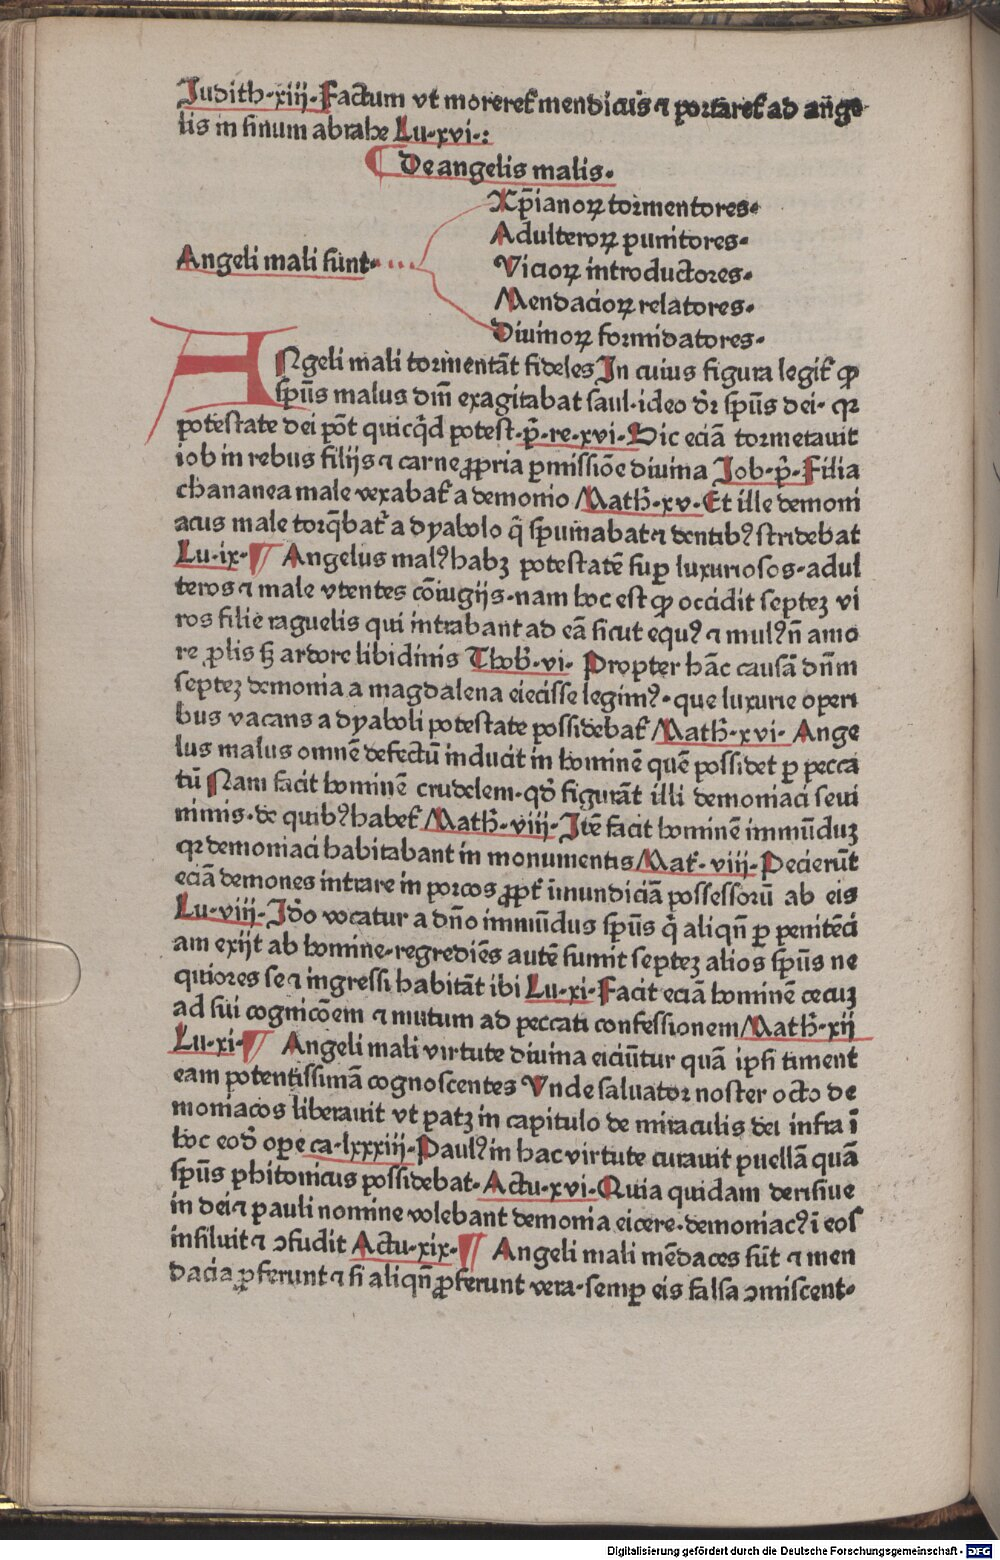 Judith·xiij·Factum vt morereť mendicus ⁊ portareť ad ange
lis in sinum abrahe Lu·xvi·:
De angelis malis·
Xp̄ianoꝝ tormentores·
Adulteroꝝ punitores·
Angeli mali sunt·
Vicioꝝ introductores·
Mendacioꝝ relatores·
Diuinoꝝ formidatores·
ANgeli mali tormentāt fideles In cuius figura legiť ꝙ
spūs malus dm̄ exagitabat saul·ideo dr̄ spūs dei· qꝛ
potestate dei pōt quicq̄d potest·p̄·re·xvi·Hic eciā tormetauit
iob in rebus filijs ⁊ carne ꝓpria ꝑmissiōe diuina Job·p̄·Filia
chananea male vexabať a demonio Math̄·xv·Et ille demoni
acus male torq̄bať a dyabolo q̄ spumabat ⁊ dentibꝰ stridebat
Lu·ix·¶ Angelus malꝰ habꝫ potestatē suꝑ luxuriosos·adul
teros ⁊ male vtentes cōiugijs·nam hoc est ꝙ occidit septeꝫ vi
ros filie raguelis qui intrabant ad eā sicut equꝰ ⁊ mulꝰ n̄ amo
re ꝓlis sꝫ ardore libidinis Thob̄·vi· Propter hāc causā dn̄m
septeꝫ demonia a magdalena eiecisse legimꝰ·que luxurie operi
bus vacans a dyaboli potestate possidebať Math̄·xvi· Ange
lus malus omnē defectū inducit in hominē quē possidet ꝑ pecca
tū Nam facit hominē crudelem·qd̄ figurāt illi demoniaci seui
nimis·de quibꝰ habeť Math̄·viij·Itē facit hominē immūduꝫ
qꝛ demoniaci habitabant in monumentis Mať·viij·Pecierūt
eciā demones intrare in porcos ꝓpť īmundiciā possessorū ab eis
Lu·viij·Id̄o vocatur a dn̄o immūdus spūs q̄ aliqn̄ ꝑ penitēci
am exijt ab homine·regrediēs autē sumit septeꝫ alios spūs ne
quiores se ⁊ ingressi habitāt ibi Lu·xi·Facit eciā hominē cecuꝫ
ad sui cognicōem ⁊ mutum ad peccati confessionem Math̄·xij
Lu·xi·¶ Angeli mali virtute diuina eiciūtur quā ipsi timent
eam potentissimā cognoscentes Vnde saluator noster octo de
moniacos liberauit vt patꝫ in capitulo de miraculis dei infra ī
hoc eod̄ oꝑe ca·lxxxiij·Paulꝰ in hac virtute curauit puellā quā
spūs phitonicus possidebat·Actu·xvi·Quia quidam derisiue
in dei ⁊ pauli nomine volebant demonia eicere·demoniacꝰ ī eos
insiluit ⁊ ↄfudit Actu·xix·¶ Angeli mali mēdaces sūt ⁊ men
dacia ꝓferunt ⁊ si aliqn̄ ꝓferunt vera·semꝑ eis falsa ↄmiscent·
Digitalisierung gefördert durch die Deutsche Forschungsgemeinschaft - DFG